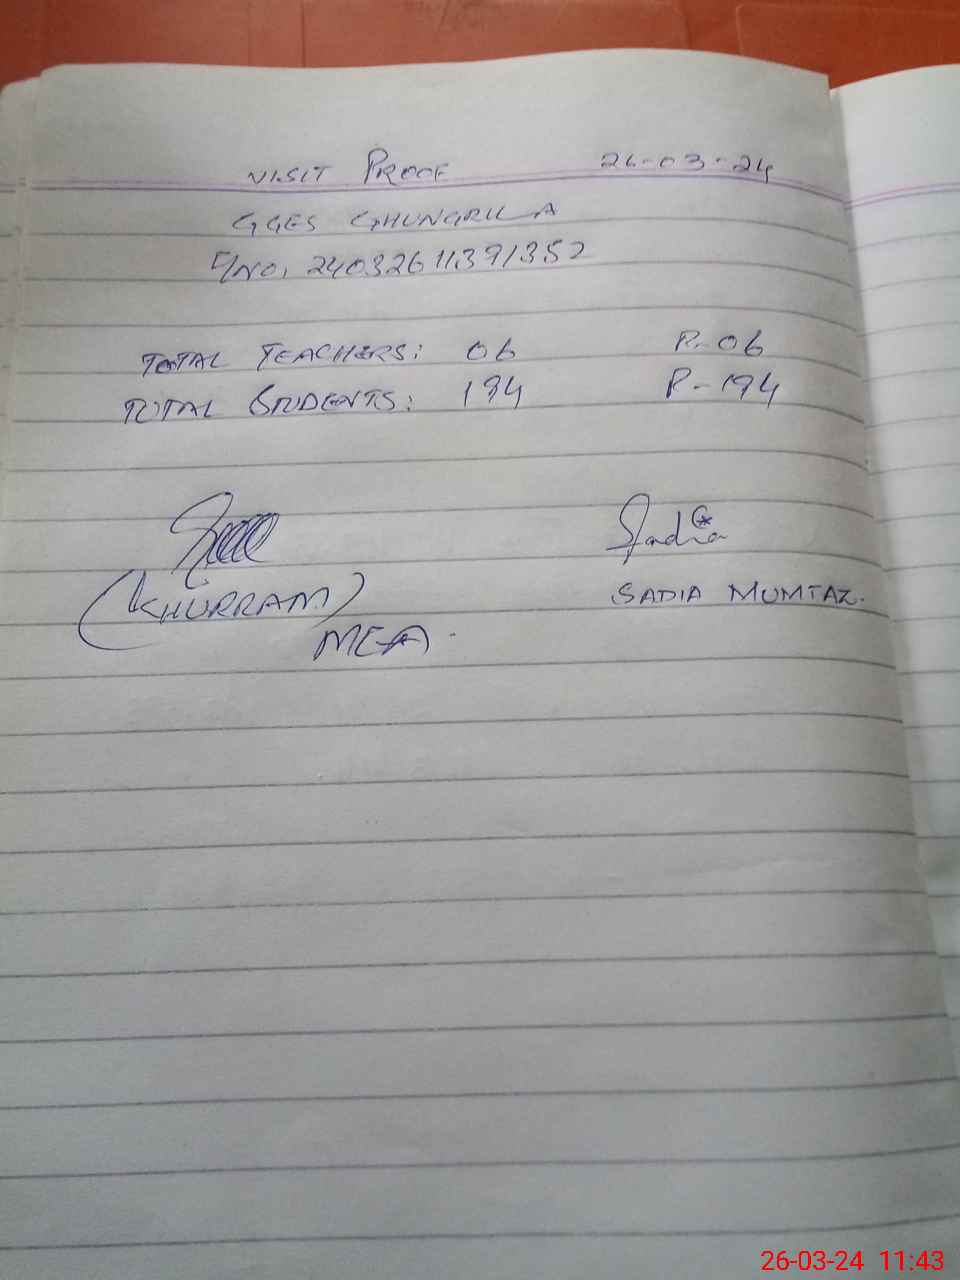 VISIT PROOF 26-03-24
GGES GHUNGRILA
F/NO, 24032611391352
TOTAL TEACHERS: 06 P-06
TOTAL STUDENTS: 194 P-194
Sadia
(KHURRAM) SADIA MUMTAZ.
MEA.
26-03-24 11:43